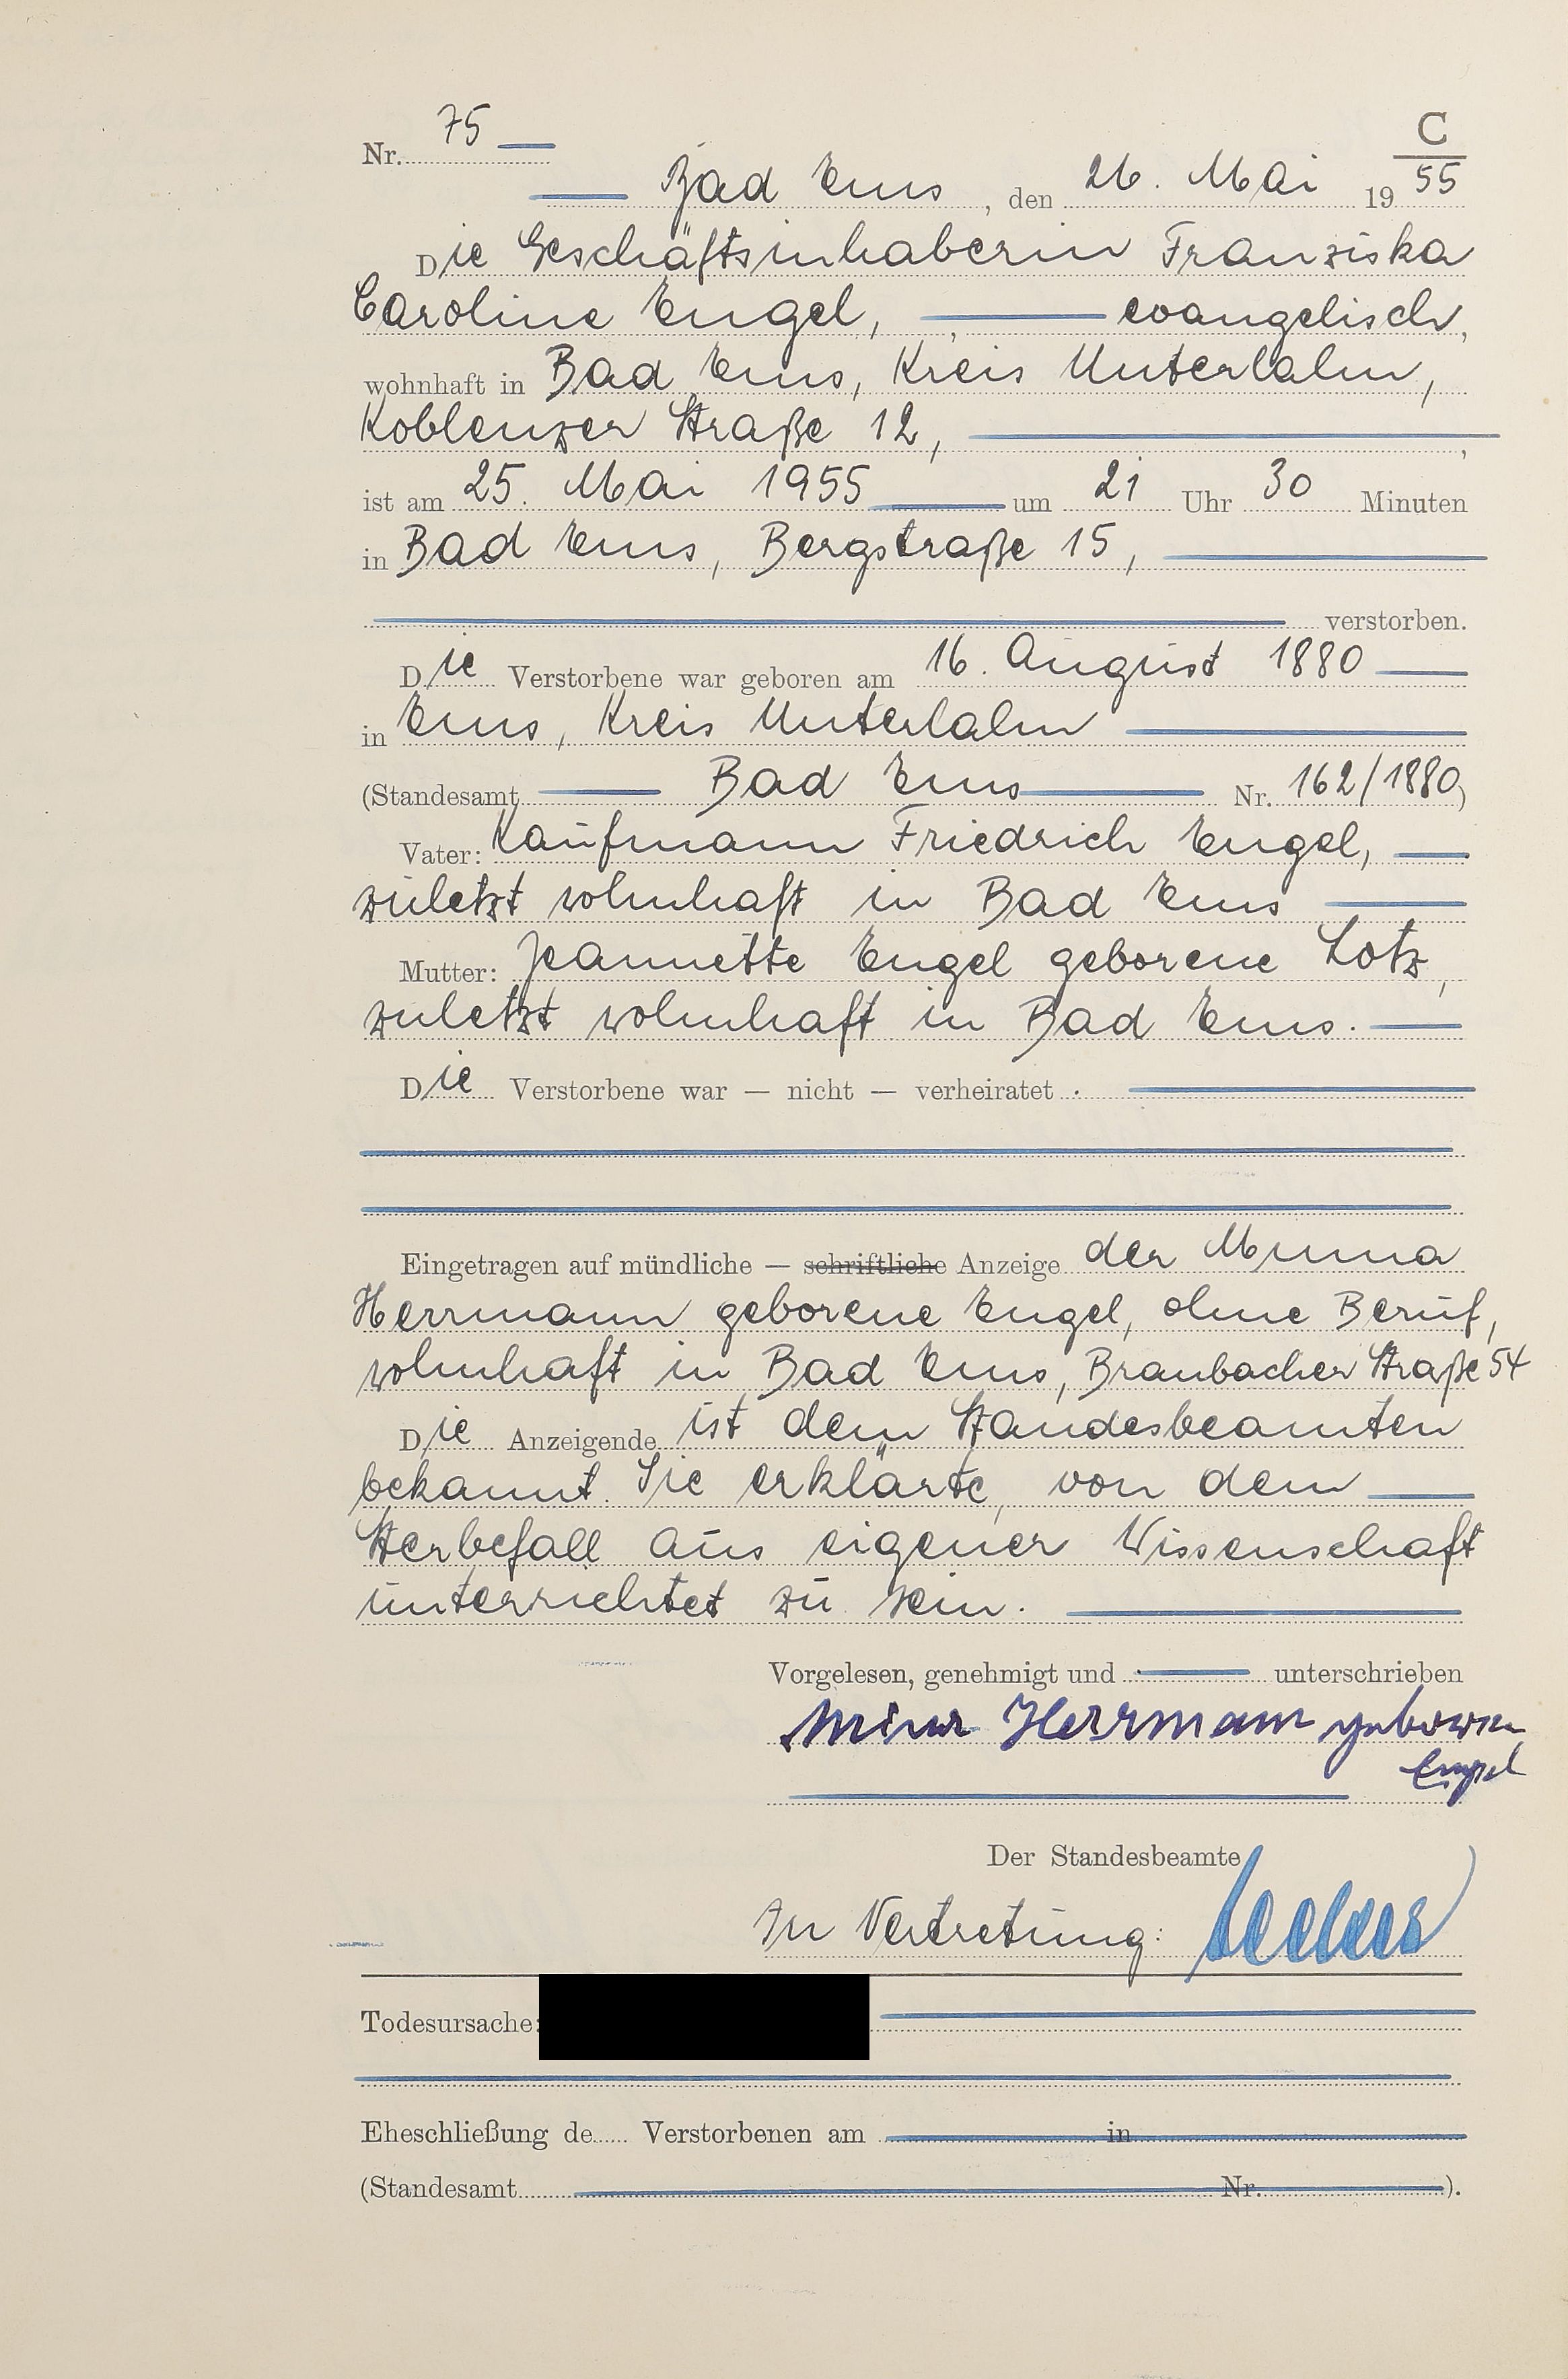 Nr. 75
C
Bad Ems, den 26. Mai 1955
Die Geschäftsinhaberin Franziska
Caroline Engel, evangelisch,
wohnhaft in Bad Ems, Kreis Unterlahn,
Koblenzer Straße 12,
ist am 25. Mai 1955 um 21 Uhr 30 Minuten
in Bad Ems, Bergstraße 15,
verstorben.
Die Verstorbene war geboren am 16. August 1880
in Ems, Kreis Unterlahn
(Standesamt Bad Ems Nr. 162/1880)
Vater: Kaufmann Friedrich Engel,
zuletzt wohnhaft in Bad Ems
Mutter: Jeannette Engel geborene Lotz,
zuletzt wohnhaft in Bad Ems.
Die Verstorbene war — nicht — verheiratet.
Eingetragen auf mündliche — schriftliche Anzeige der Minna
Herrmann geborene Engel, ohne Beruf,
wohnhaft in Bad Ems, Braubacher Straße 54
Die Anzeigende ist dem Standesbeamten
bekannt. Sie erklärte, von dem
Sterbefall aus eigener Wissenschaft
unterrichtet zu sein.
Vorgelesen, genehmigt und unterschrieben
Minna Herrmann geborene
Engel
Der Standesbeamte
In Vertretung:
Todesursache:
Eheschließung de Verstorbenen am in
(Standesamt Nr. ).